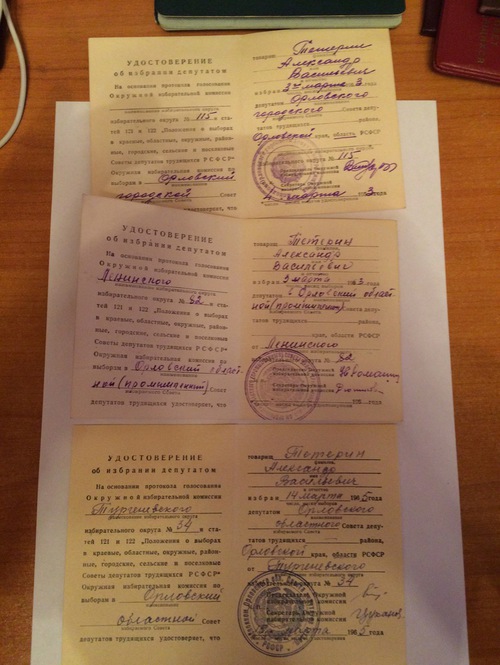 УДОСТОВЕРЕНИЕ
об избрании депутатом
На основании протокола голосования
Окружной избирательной комиссии
избирательного округа № 115 и ста-
тей 121 и 122 „Положения о выборах
в краевые, областные, окружные, район-
ные, городские, сельские и поселковые
Советы депутатов трудящихся РСФСР“
Окружная избирательная комиссия по
выборам в Орловский
городской Совет
товарищ Тетерин
Александр
Васильевич
3 марта 3
депутатом Орловского
городского Совета депу-
татов трудящихся района,
Орловской края, область РСФСР
избирательного округа № 115
Председатель Окружной
избирательной комиссии
Секретарь Окружной
4 марта 3 года
УДОСТОВЕРЕНИЕ
об избрании депутатом
На основании протокола голосования
Окружной избирательной комиссии
Ленинского
избирательного округа № 82 и ста-
тей 121 и 122 „Положения о выборах
в краевые, областные, окружные, район-
ные, городские, сельские и поселковые
Советы депутатов трудящихся РСФСР“
Окружная избирательная комиссия по
выборам в Орловский област-
ной (промышленный) Совет
депутатов трудящихся удостоверяет, что
товарищ Тетерин
Александр
Васильевич
избран 3 марта 196 3 года
депутатом в Орловский област-
ной (промышленный) Совета депу-
татов трудящихся района,
края, область РСФСР
от Ленинского
избирательного округа № 82
Председатель Окружной
избирательной комиссии
Секретарь Окружной
избирательной комиссии
УДОСТОВЕРЕНИЕ
об избрании депутатом
На основании протокола голосования
Окружной избирательной комиссии
Тургеневского
избирательного округа № 54 и ста-
тей 121 и 122 „Положения о выборах
в краевые, областные, окружные, район-
ные, городские, сельские и поселковые
Советы депутатов трудящихся РСФСР“
Окружная избирательная комиссия по
выборам в Орловский
областной Совет
депутатов трудящихся удостоверяет, что
товарищ Тетерин
Александр
Васильевич
избран 14 марта 196
депутатом Орловского
областного Совета депу-
татов трудящихся района,
Орловской края, область РСФСР
от Тургеневского
избирательного округа № 54
Председатель Окружной
избирательной комиссии
Секретарь Окружной
избирательной комиссии
марта 196 года